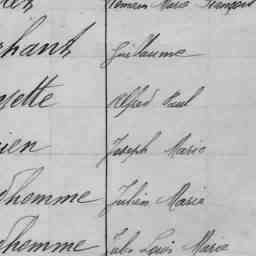 Romain Marie François
chant Guillaume
sette Alfred Paul
ien Joseph Marie
dhomme Julien Marie
dhomme Jules Louis Marie